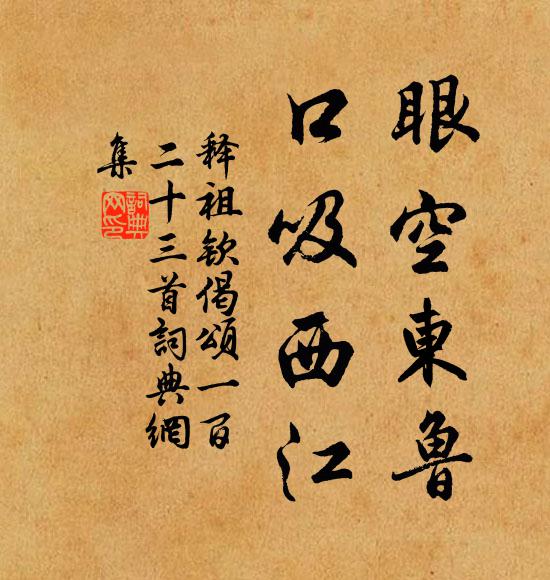 眼空東魯
口吸西江
释祖钦偈頌一百
二十三首詞典網
集
詞典
网印